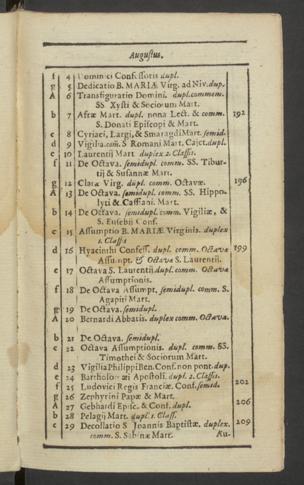 Augustus.
f 4 Dominici Confessoris dupl.
g 5 Dedicatio B. MARIÆ Virg. ad Niv. dup.
A 6 Transfiguratio Domini. dupl. commem.
SS Xysti & Sociorum Mart.
b 7 Afræ Mart. dupl. nona Lect. & comm. 192
S. Donati Episcopi & Mart.
c 8 Cyriaci, Largi, & Smaragdi Mart. semid.
d 9 Vigilia. com. S Romani Mart. Cajet. dupl.
e 10 Laurentii Mart duplex 2. Classis.
f 11 De Octava. semidupl. comm. SS. Tibur-
tij & Susannæ Mart.
g 12 Claræ Virg. dupl. comm. Octavæ. 196
A 13 De Octava. semidupl. comm. SS. Hippo-
lyti & Cassiani. Mart.
b 14 De Octava. semidupl. comm. Vigiliæ, &
S. Eusebij Conf.
c 15 Assumptio B. MARIÆ Virginis. duplex
1. Classis
d 16 Hyacinthi Confess. dupl. comm. Octavæ 199
Assumpt. & Octavæ S. Laurentii.
e 17 Octava S. Laurentii. dupl. comm. Octavæ
Assumptionis.
f 18 De Octava Assumpt. semidupl. comm. S.
Agapiti Mart.
g 19 De Octava. semidupl.
A 20 Bernardi Abbatis. duplex comm. Octavæ.
b 21 De Octava. semidupl.
c 22 Octava Assumptionis. dupl. comm. SS.
Timothei & Sociorum Mart.
d 23 Vigilia Philippi Ben. Conf. non pont. dup.
e 24 Bartholomæi Apostoli. dupl. 2. Classis.
f 25 Ludovici Regis Franciæ. Conf. semid. 202
g 26 Zephyrini Papæ & Mart.
A 27 Gebhardi Episc. & Conf. dupl. 206
b 28 Pelagij Mart. dupl. 1. Class.
c 29 Decollatio S Joannis Baptistæ. duplex. 209
comm. S. Sabinæ Mart.